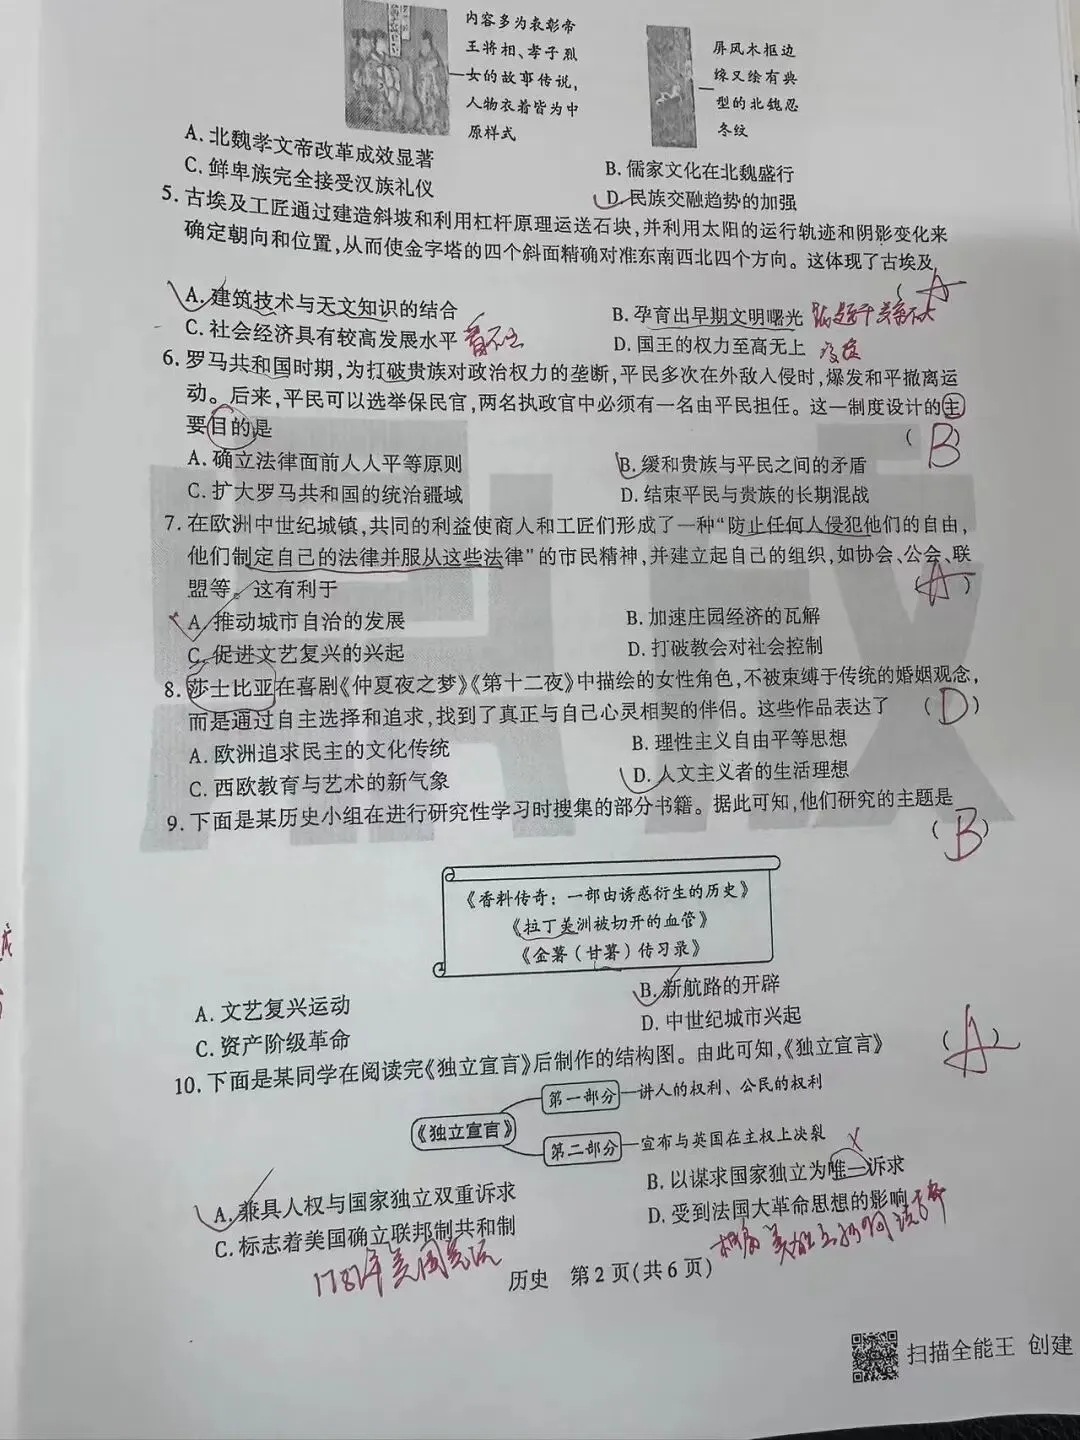 内容多为表彰帝
王将相、孝子烈
女的故事传说,
人物衣着皆为中
原样式
屏风木框边
缘又绘有典
型的北魏忍
冬纹
A. 北魏孝文帝改革成效显著
B. 儒家文化在北魏盛行
C. 鲜卑族完全接受汉族礼仪
D. 民族交融趋势的加强
5. 古埃及工匠通过建造斜坡和利用杠杆原理运送石块,并利用太阳的运行轨迹和阴影变化来
确定朝向和位置,从而使金字塔的四个斜面精确对准东南西北四个方向。这体现了古埃及
( A )
A. 建筑技术与天文知识的结合
B. 孕育出早期文明曙光
C. 社会经济具有较高发展水平 看不出
D. 国王的权力至高无上
6. 罗马共和国时期,为打破贵族对政治权力的垄断,平民多次在外敌入侵时,爆发和平撤离运
动。后来,平民可以选举保民官,两名执政官中必须有一名由平民担任。这一制度设计的主
要目的是
( B )
A. 确立法律面前人人平等原则
B. 缓和贵族与平民之间的矛盾
C. 扩大罗马共和国的统治疆域
D. 结束平民与贵族的长期混战
7. 在欧洲中世纪城镇,共同的利益使商人和工匠们形成了一种“防止任何人侵犯他们的自由,
他们制定自己的法律并服从这些法律”的市民精神,并建立起自己的组织,如协会、公会、联
盟等。这有利于
( A )
A. 推动城市自治的发展
B. 加速庄园经济的瓦解
C. 促进文艺复兴的兴起
D. 打破教会对社会控制
8. 莎士比亚在喜剧《仲夏夜之梦》《第十二夜》中描绘的女性角色,不被束缚于传统的婚姻观念,
而是通过自主选择和追求,找到了真正与自己心灵相契的伴侣。这些作品表达了 ( D )
A. 欧洲追求民主的文化传统
B. 理性主义自由平等思想
C. 西欧教育与艺术的新气象
D. 人文主义者的生活理想
9. 下面是某历史小组在进行研究性学习时搜集的部分书籍。据此可知,他们研究的主题是
( B )
《香料传奇:一部由诱惑衍生的历史》
《拉丁美洲被切开的血管》
《金薯(甘薯)传习录》
A. 文艺复兴运动
B. 新航路的开辟
C. 资产阶级革命
D. 中世纪城市兴起
10. 下面是某同学在阅读完《独立宣言》后制作的结构图。由此可知,《独立宣言》 ( A )
《独立宣言》
第一部分 讲人的权利、公民的权利
第二部分 宣布与英国在主权上决裂
A. 兼具人权与国家独立双重诉求
B. 以谋求国家独立为唯一诉求
C. 标志着美国确立联邦制共和制
D. 受到法国大革命思想的影响
1787年美国宪法
历史 第2页(共6页)
扫描全能王 创建